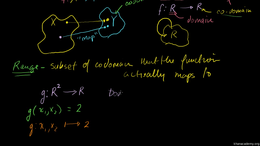 X Y
"map"
f: R → R
co-domain
domain
R
Range - subset of codomain that the function
actually maps to
g: R² → R
g(x₁,x₂) = 2
g: x₁,x₂ ↦ 2